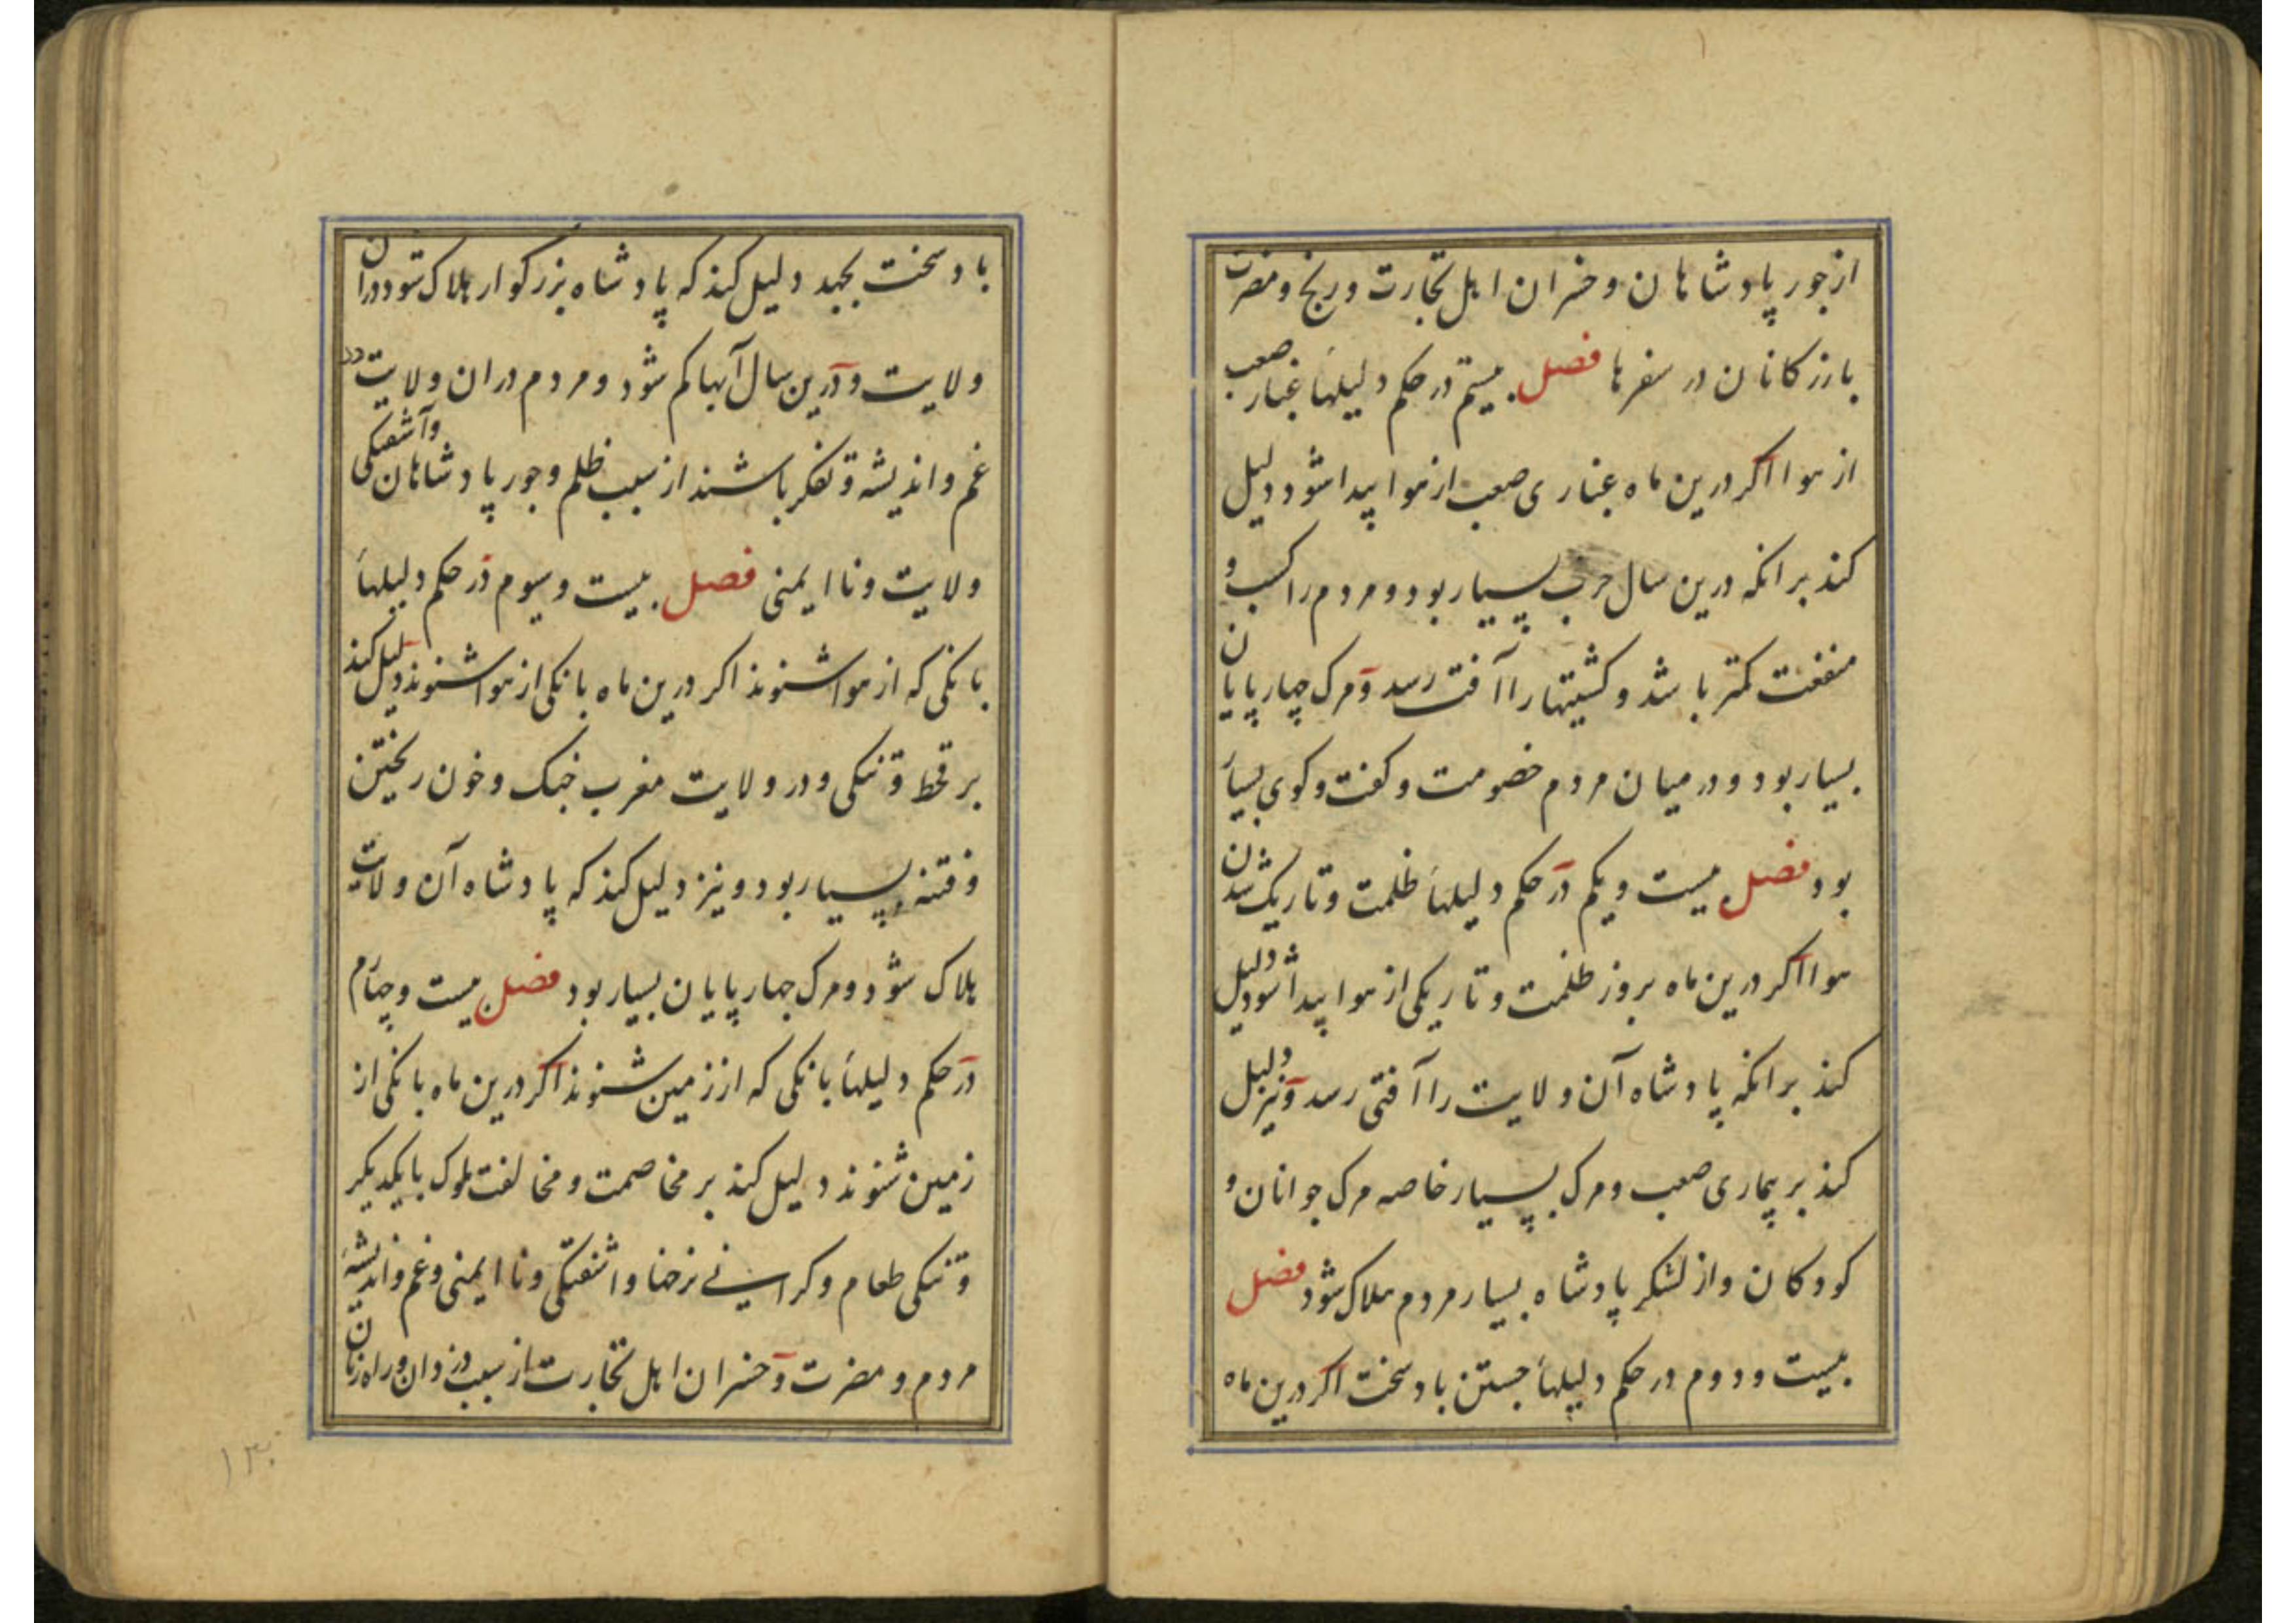 از جور پادشاهان و خسران اهل تجارت و رنج و مضرت
بازرکانان در سفرها فصل بیستم در حکم دلیلهاء غبار صعب
از هوا اکر درین ماه غباری صعب از هوا پیدا شود دلیل
کند برانکه درین سال حرب بسیار بود و مردم را کسب و
منفعت کمتر باشد و کشتیها را آفت رسد و مرک چهارپایان
بسیار بود و در میان مردم خصومت و کفت و کوی بسیار
بود فصل بیست و یکم در حکم دلیلهاء ظلمت و تاریک شدن
هوا اکر درین ماه بروز ظلمت و تاریکی از هوا پیدا شود دلیل
کند برانکه پادشاه آن ولایت را آفتی رسد و نیز دلیل
کند بر بیماری صعب و مرک بسیار خاصه مرک جوانان و
کودکان و از لشکر پادشاه بسیار مردم هلاک شود فصل
بیست و دوم در حکم دلیلهاء جستن باد سخت اکر درین ماه
باد سخت بجهد دلیل کند که پادشاه بزرکوار هلاک شود دران
ولایت و درین سال آبها کم شود و مردم دران ولایت در
غم و اندیشه و تفکر باشند از سبب ظلم و جور پادشاهان و آشفتکی
ولایت و ناایمنی فصل بیست و سیوم در حکم دلیلهاء
بانکی که از هوا شنوند اکر درین ماه بانکی از هوا شنوند دلیل کند
بر قحط و تنکی و در ولایت مغرب جنک و خون ریختن
و فتنه بسیار بود و نیز دلیل کند که پادشاه آن ولایت
هلاک شود و مرک چهارپایان بسیار بود فصل بیست و چهارم
در حکم دلیلهاء بانکی که از زمین شنوند اکر درین ماه بانکی از
زمین شنوند دلیل کند بر مخاصمت و مخالفت ملوک با یکدیکر
و تنکی طعام و کرانی نرخها و اشفتکی و ناایمنی و غم و اندیشهٔ
مردم و مضرت و خسران اهل تجارت از سبب دزدان و راه زنان